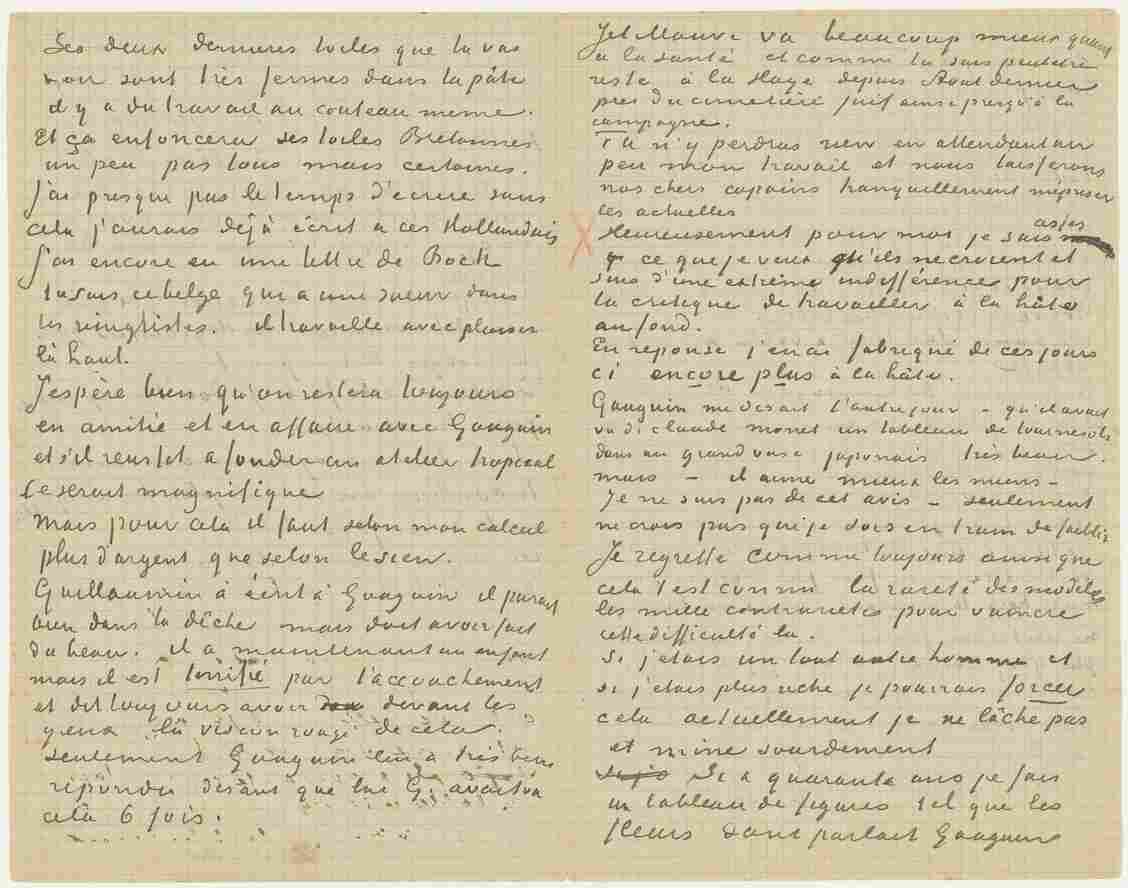 Les deux dernieres toiles que tu vas
voir sont très fermes dans la pâte
il y a du travail au couteau meme.
Et ça enfoncera ses toiles Bretonnes
un peu pas tous mais certaines.
J'ai presque pas le temps d'ecrire sans
cela j'aurais dejà écrit a ces Hollandais
J'ai encore eu une lettre de Boch
tu sais, ce belge qui a une soeur dans
les vingtistes. il travaille avec plaisir
là haut.
J'espère bien qu'on restera toujours
en amitié et en affaire avec Gauguin
et s'il reussit a fonder un atelier tropical
ce serait magnifique
Mais pour cela il faut selon mon calcul
plus d'argent que selon le sien.
Guillaumin à écrit à Gauguin il parait
bien dans la dêche mais doit avoir fait
du beau. il a maintenant un enfant
mais il est terrifié par l'accouchement
et dit toujours avoir devant les
yeux la vision rouge de cela.
seulement Gauguin lui a très bien
répondu disant que lui G. avait vu
cela 6 fois.
Jet Mauve va beaucoup mieux quant
a la santé et comme tu sais peutetre
reste à la Haye depuis Aout dernier
pres du cimetière juif ainsi presqu'à la
campagne.
Tu n'y perdras rien en attendant un
peu mon travail et nous laisserons
nos chers copains tranquillement mépriser
les actuelles
Heureusement pour moi je sais assez
ce que je veux qu'ils ne croient et
suis d'une extrème indifférence pour
la critique de travailler à la hâte
au fond.
En reponse j'en ai fabriqué de ces jours
ci encore plus à la hâte.
Gauguin me disait l'autre jour – qu'il avait
vu de claude monet un tableau de tournesols
dans un grand vase japonais très beau.
mais – il aime mieux les miens –
Je ne suis pas de cet avis – seulement
ne crois pas que je sois en train de faiblir
Je regrette comme toujours ainsi que
cela t'est connu la rareté des modèles
les mille contrarietés pour vaincre
cette difficulté là.
Si j'etais un tout autre homme et
si j'etais plus riche je pourrais forcer
cela actuellement je ne lâche pas
et mine sourdement
Si a quarante ans je fais
un tableau de figures tel que les
fleurs dont parlait Gauguin